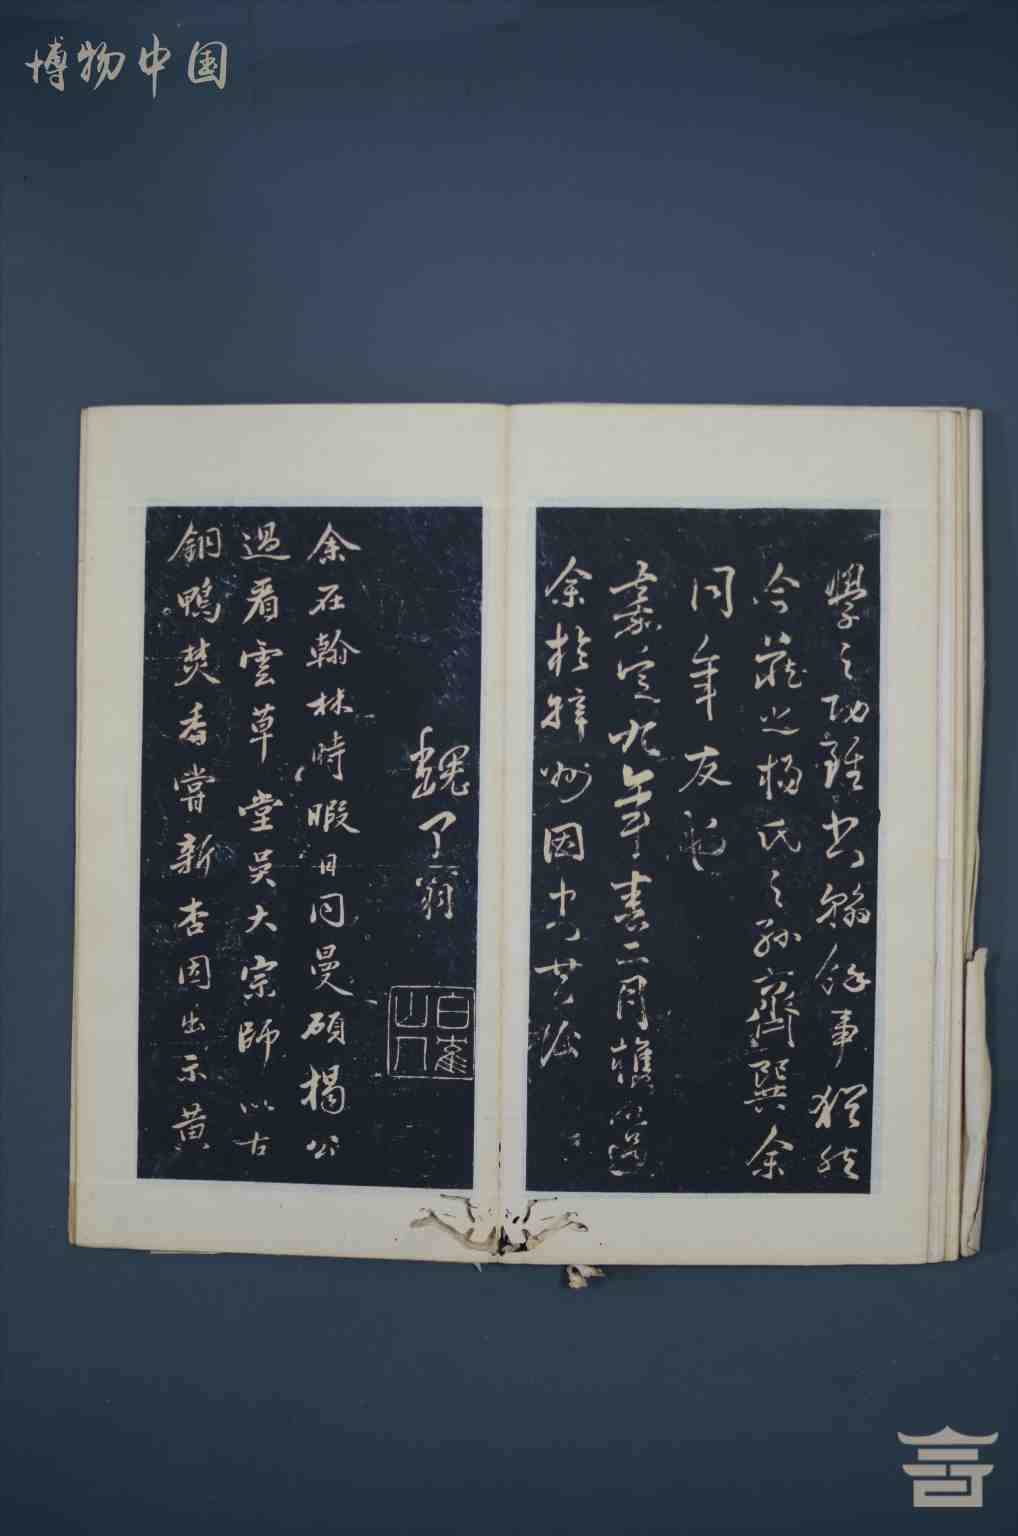 博物中国
學之功雖書翰餘事猶然
今藏之楊氏之孫齊巽余
同年友也
嘉定九年春二月雋過
余於梓州因書其後
魏了翁
白鶴山人
余在翰林時暇日同曼碩揭公
過看雲草堂吴大宗師以古
銅鴨焚香嘗新杏因出示黄